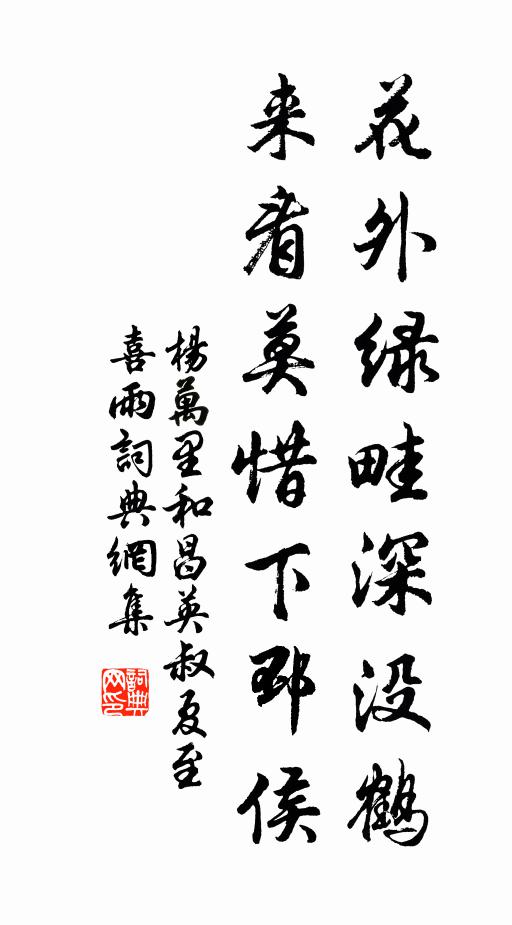 花外绿畦深没鶴
来看莫惜下邳侯
楊萬里和昌英叔夏至
喜雨詞典網集
詞典
网印